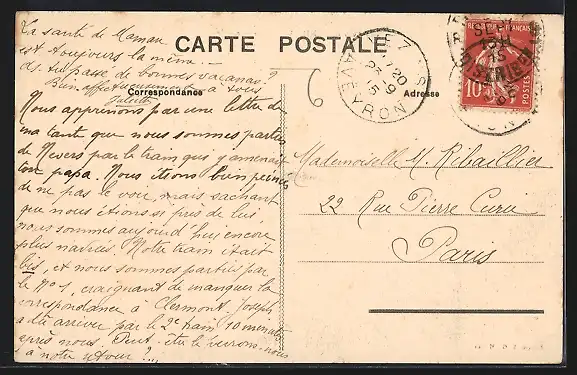 La santé de Maman
est toujours la même.
ds. tu passe de bonnes vacances?
Bien affectueusement à tous
Juliette
CARTE POSTALE
Correspondance
Adresse
Nous apprenons par une lettre de
ma tante que nous sommes parties
de Nevers par le train qui y amenait
ton papa. Nous étions bien peinées
de ne pas le voir, mais sachant
que nous étions si près de lui,
nous sommes aujourd'hui encore
plus navrées. Notre train était
bis, et nous sommes partis par
le No 1, craignant de manquer la
correspondance à Clermont. Joseph
a dû arriver par le 2e train 10 minutes
après nous. Peut-être le verrons-nous
à notre retour?...
Mademoiselle M. Ribaillier
22 Rue Pierre Curie
Paris
6
AVEYRON
20
9
15
10
POSTES